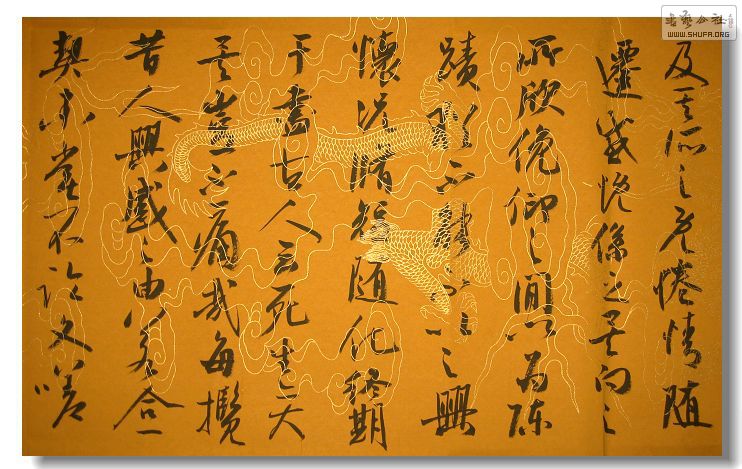 書藝公社
WWW.SHUFA.ORG
及其所之既惓情随
遷感慨係之矣向之
所欣俛仰之間以為陳
蹟猶不能不以之興
懷況脩短随化終期
于盡古人云死生大
矣豈不痛哉每攬
昔人興感之由若合一
契未嘗不臨文嗟